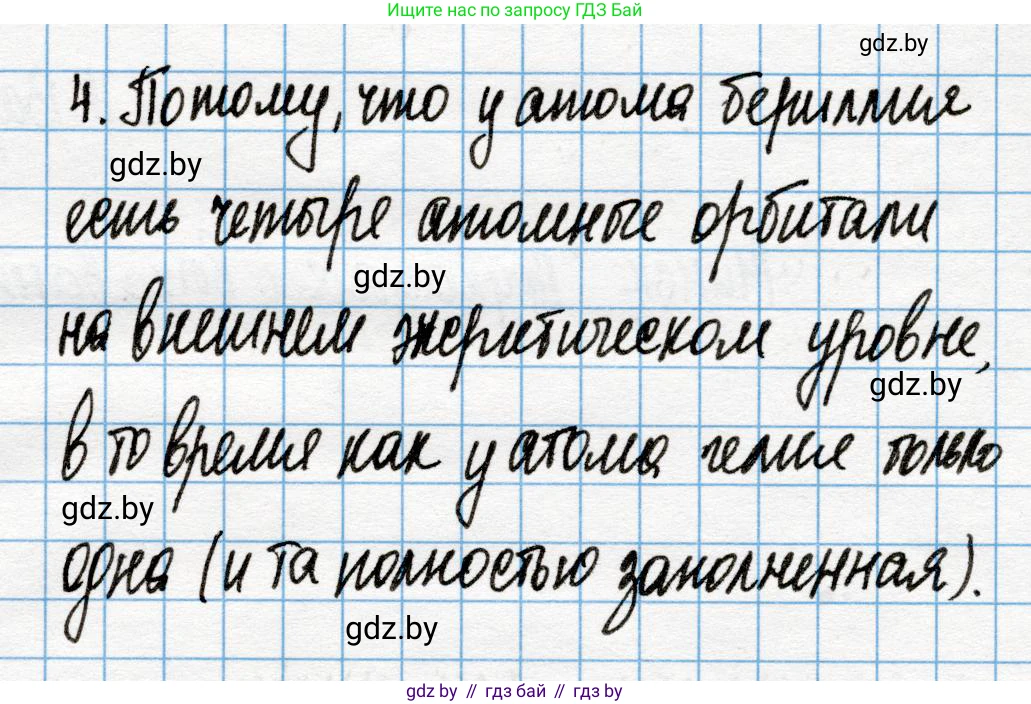 Ищите нас по запросу ГДЗ Бай
gdz.by
4. Потому, что у атома бериллия
gdz.by
есть четыре атомные орбитали
gdz.by
на внешнем энергетическом уровне,
gdz.by
в то время как у атома гелия только
gdz.by
одна (и та полностью заполненная).
gdz.by
gdz by // гдз бай // гдз by